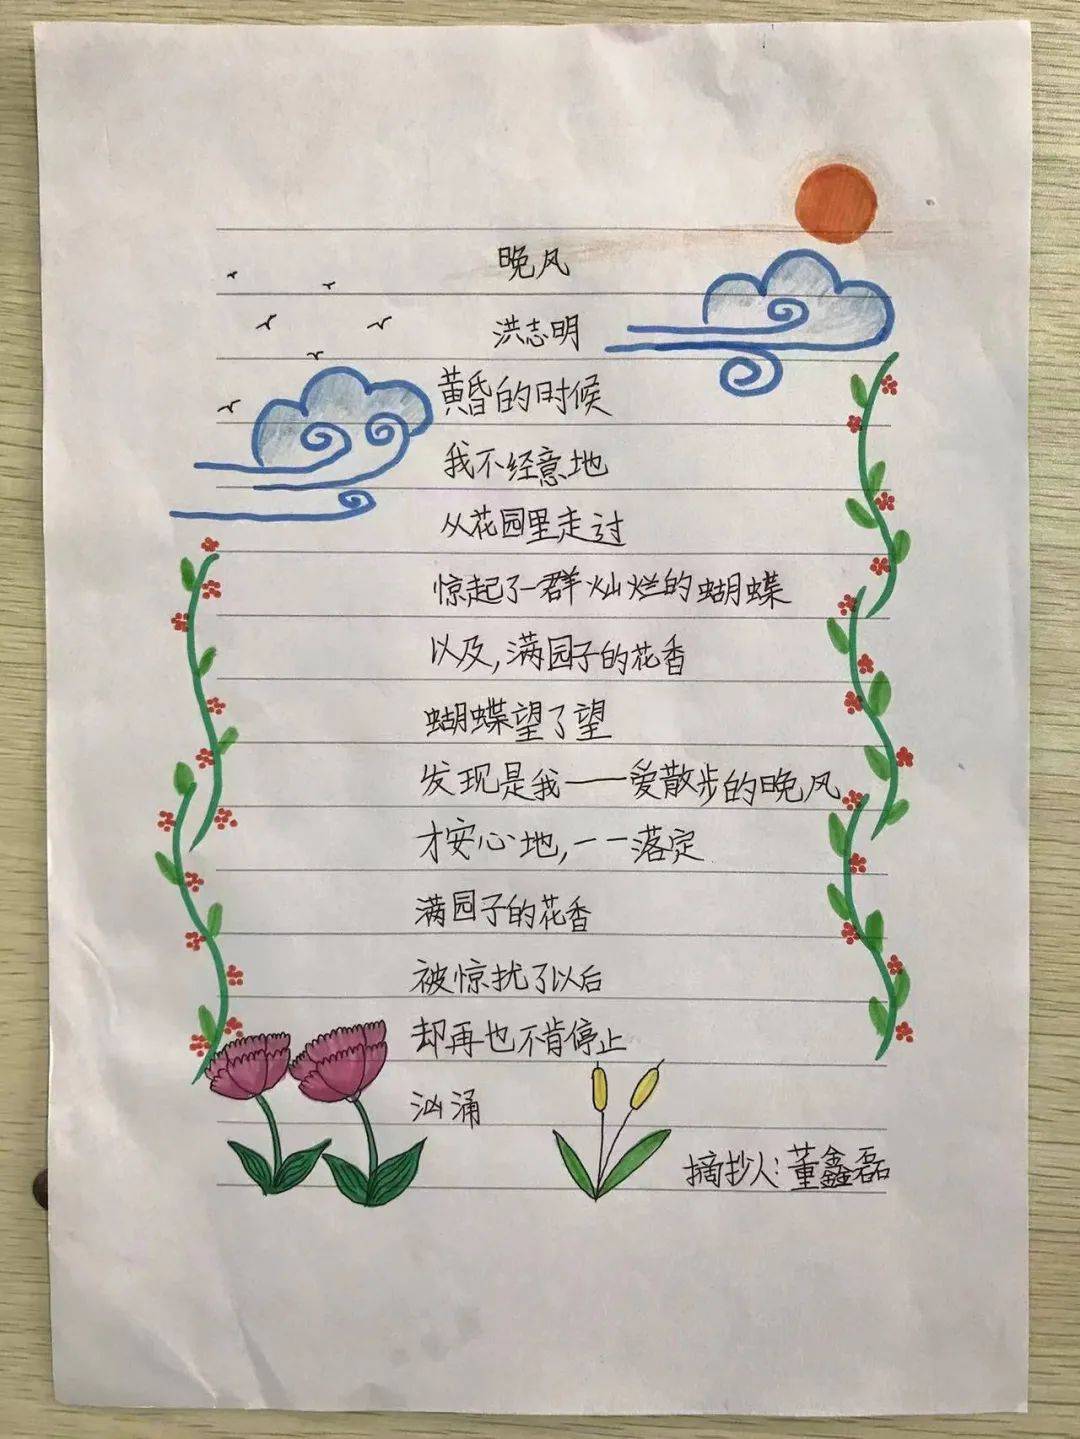 晚风
洪志明
黄昏的时候
我不经意地
从花园里走过
惊起了一群灿烂的蝴蝶
以及,满园子的花香
蝴蝶望了望
发现是我——爱散步的晚风
才安心地,一一落定
满园子的花香
被惊扰了以后
却再也不肯停止
汹涌
摘抄人:董鑫磊